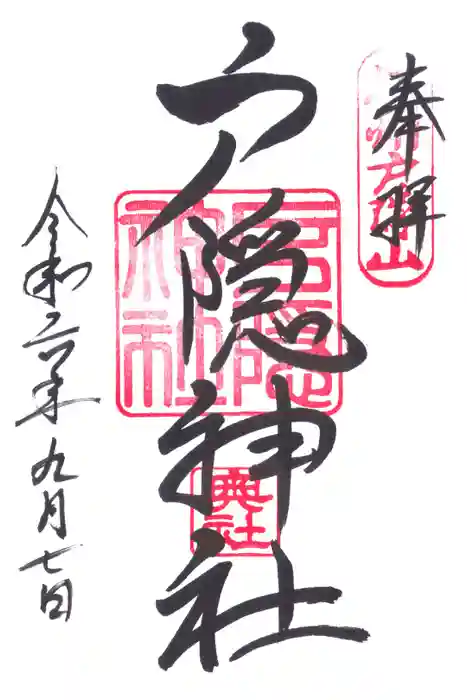 奉拝
戸隠神社
戸隠神社
奥社
令和六年九月七日